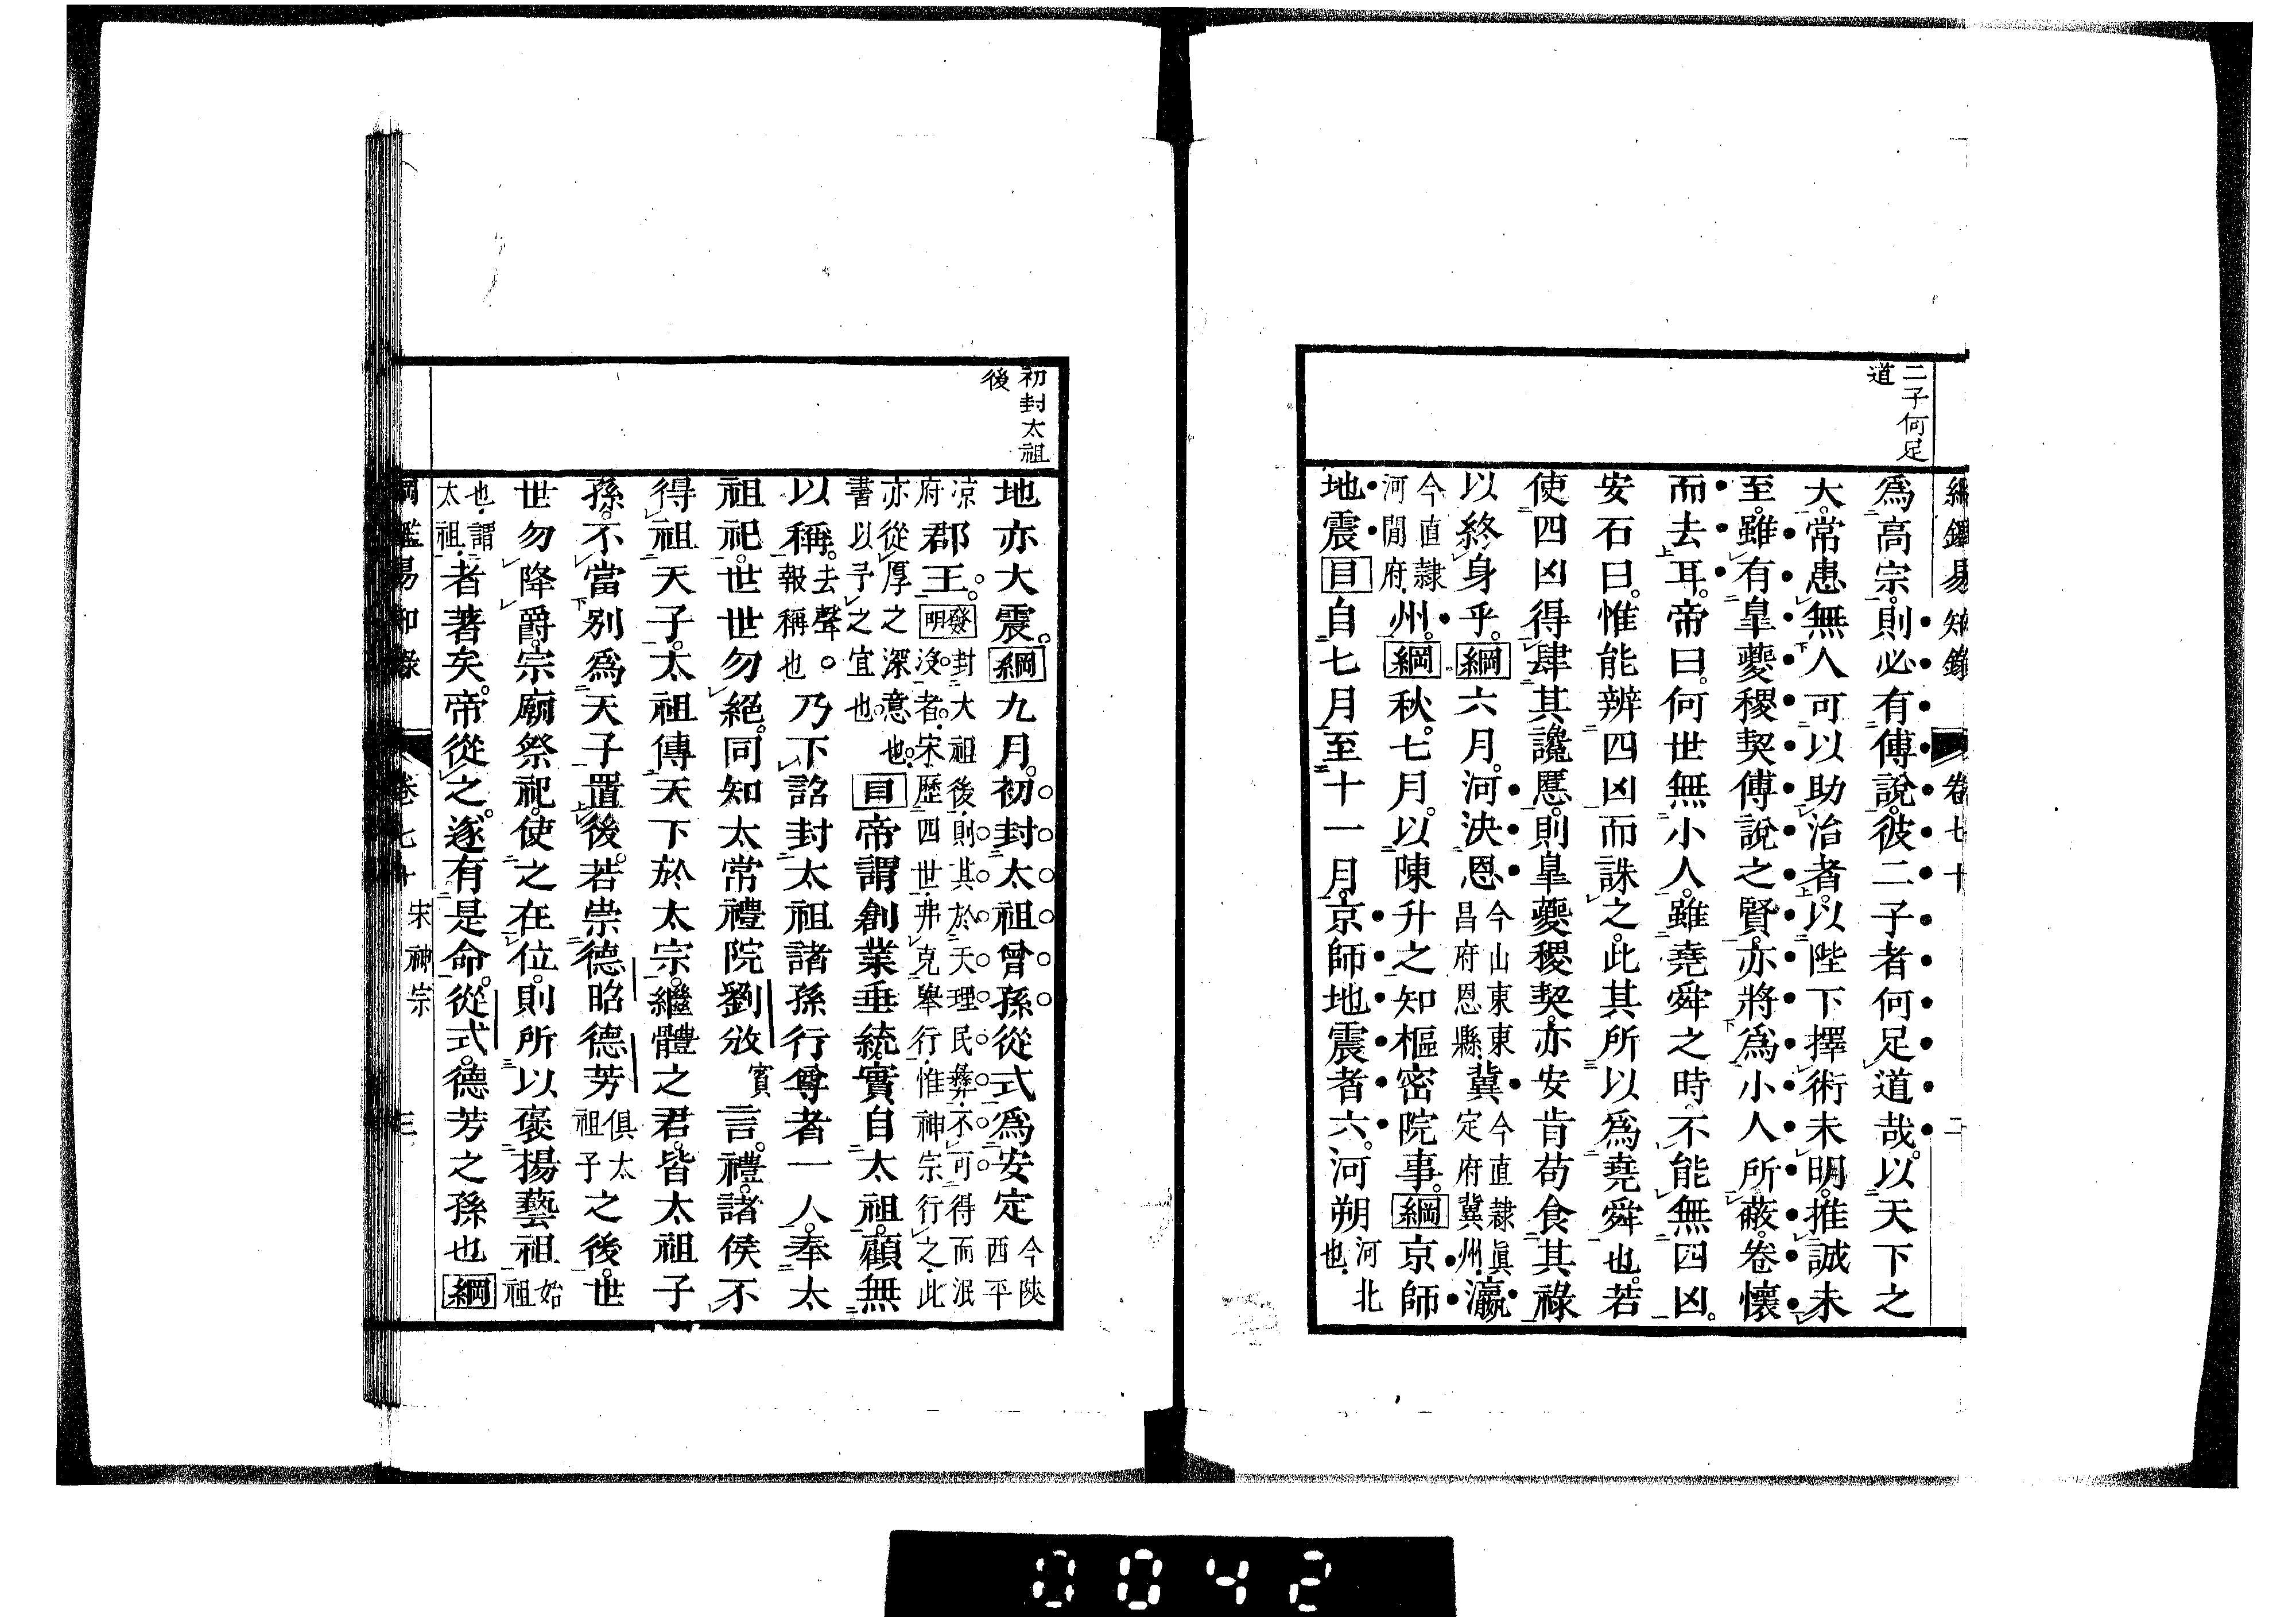 綱鑑易知錄 卷七十 二
二子何足
道
爲高宗。則必有傅說。彼二子者何足道哉。以天下之
大。常患無人可以助治者。以陛下擇術未明。推誠未
至。雖有皐夔稷契傅說之賢。亦將爲小人所蔽。卷懷
而去耳。帝曰。何世無小人。雖堯舜之時。不能無四凶。
安石曰。惟能辨四凶而誅之。此其所以爲堯舜也。若
使四凶得肆其讒慝。則皐夔稷契。亦安肯苟食其祿
以終身乎。綱六月。河決恩今山東東昌府恩縣冀今直隸眞定府冀州瀛
今直隸河閒府州。綱秋。七月。以陳升之知樞密院事。綱京師
地震目自七月至十一月。京師地震者六。河朔河北也
初封太祖
後
地亦大震。綱九月。初封太祖曾孫從式爲安定今陝西平
涼府郡王。發明封大祖後。則其於天理民彝。不可得而泯沒者。宋歷四世。弗克舉行。惟神宗行之。此
亦從厚之深意也。書以予之宜也。目帝謂創業垂統。實自太祖。顧無
以稱。去聲。報稱也乃下詔封太祖諸孫行尊者一人。奉太
祖祀。世世勿絕。同知太常禮院劉攽賓言。禮。諸侯不
得祖天子。太祖傳天下於太宗。繼體之君。皆太祖子
孫。不當別爲天子置後。若崇德昭德芳俱太祖子之後。世
世勿降爵。宗廟祭祀。使之在位。則所以褒揚藝祖始祖
也。謂太祖。者著矣。帝從之。遂有是命。從式。德芳之孫也綱
綱鑑易知錄 卷七十 宋神宗 三
0042